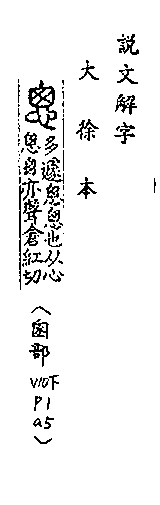 説文解字
大徐本
多遽悤悤也从心
亦聲倉紅切
〈囱部 V10下 P1 a5〉